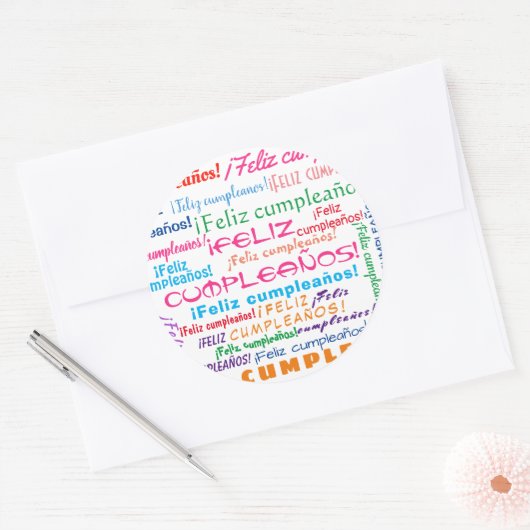 eaños! ¡Feliz cum
¡Feliz cumpleaños! ¡FELIZ
CUMPLEAÑOS!
¡Feliz cumpleaño
¡FELIZ
¡Feliz
cumpleaños!
cumpleaños!
¡Feliz cumpleaños!
¡Feliz
mpleaños!
CUMPLEAÑOS!
¡Feliz cumpleaños!
¡Feliz
cumpleaños!
¡FELIZ
CUMPLEAÑOS!
¡Feliz cumpleaños!
¡Feliz cumpleaños!
¡FELIZ
cumpleaños!
¡Feliz cumpleaños!
CUMPLE